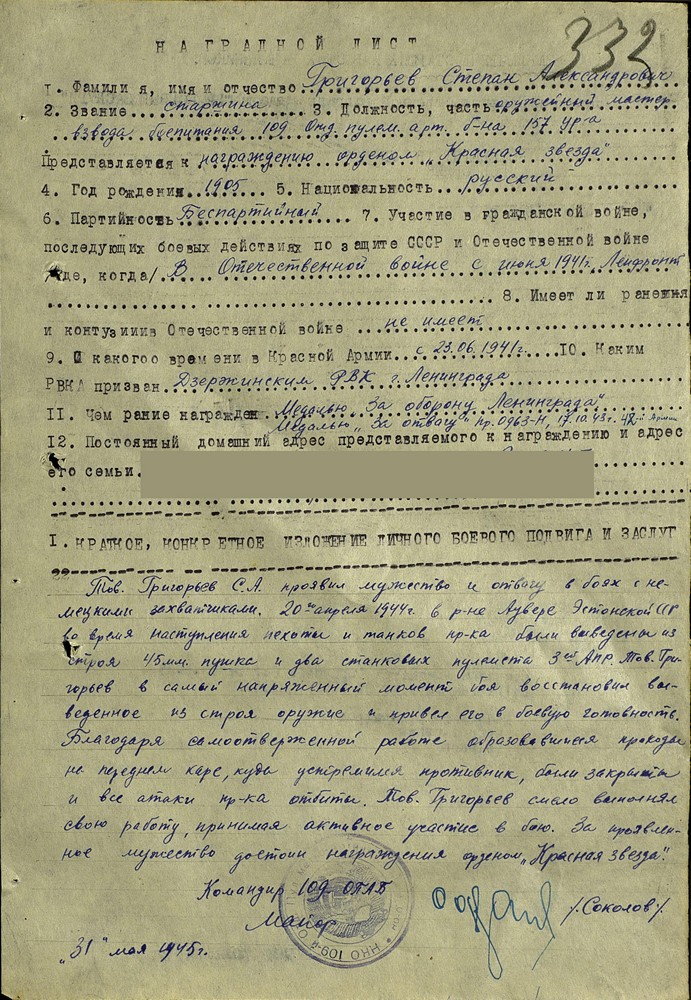 332
НАГРАДНОЙ ЛИСТ
1. Фамилия, имя и отчество Григорьев Степан Александрович
2. Звание старшина 3. Должность, часть оружейный мастер
взвода боепитания 109 Отд. пулем. арт. б-на 157 ур-а
Представляется к награждению орденом „Красная звезда"
4. Год рождения 1905 5. Национальность русский
6. Партийность Беспартийный 7. Участие в гражданской войне,
последующих боевых действиях по защите СССР и Отечественной войне
/где, когда/ В Отечественной войне с июня 1941г. Ленфронт
8. Имеет ли ранения
и контузииив Отечественной войне не имеет
9. С какогоо времени в Красной Армии с 23.06.1941г. 10. Каким
РВКА призван Дзержинским РВК г. Ленинграда
11. Чем рание награжден Медалью „За оборону Ленинграда"
Медалью „За отвагу" пр. 0963-н, 17.10.43г. 42-й Армии
12. Постоянный домашний адрес представляемого к награждению и адрес
его семьи.
I. КРАТКОЕ, КОНКРЕТНОЕ ИЗЛОЖЕНИЕ ЛИЧНОГО БОЕВОГО ПОДВИГА И ЗАСЛУГ
Тов. Григорьев С.А. проявил мужество и отвагу в боях с не-
мецкими захватчиками. 20го апреля 1944г. в р-не Аувере Эстонской ССР
во время наступления пехоты и танков пр-ка были выведены из
строя 45мм. пушка и два станковых пулемета 3ей АПР. Тов. Гри-
горьев в самый напряженный момент боя восстановил вы-
веденное из строя оружие и привел его в боевую готовность.
Благодаря самоотверженной работе образовавшиеся проходы
на переднем крае, куда устремился противник, были закрыты
и все атаки пр-ка отбиты. Тов. Григорьев смело выполнял
свою работу, принимая активное участие в бою. За проявлен-
ное мужество достоин награждения орденом „Красная звезда".
Командир 109 ОПАБ
Майор /Соколов/
„31" мая 1945г.
НКО 109-й